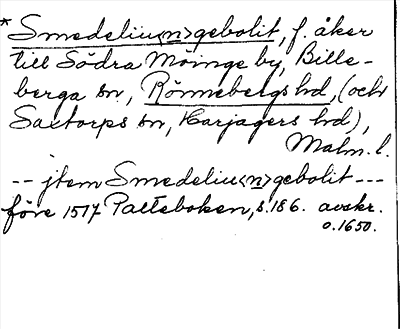 * Smedeliu<n>gebolit, f. åker
till Södra Möinge by, Bille-
berga sn, Rönnebergs hd, (och
Saxtorps sn, Harjagers hd),
Malm. l.
-- jtem Smedeliu<n>gebolit ---
före 1517 Palteboken, s. 186. avskr.
o. 1650.